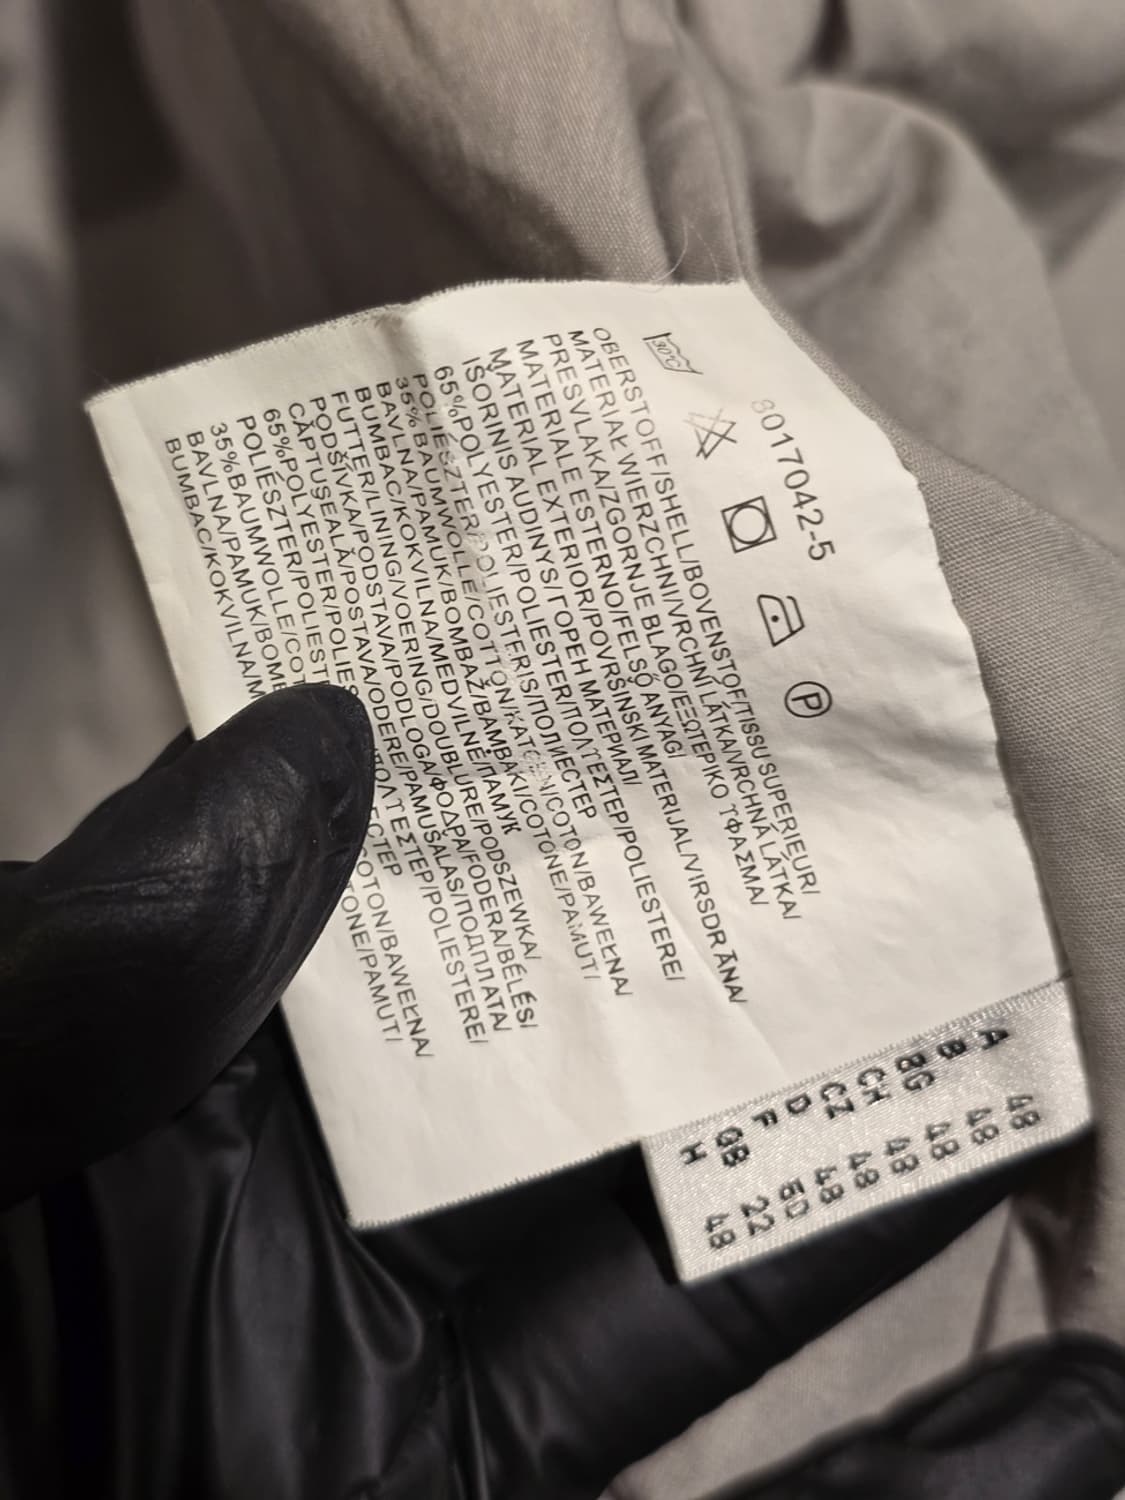 8017042-5
30°C
P
OBERSTOFF/SHELL/BOVENSTOF/TISSU SUPERIEUR/
MATERIAŁ WIERZCHNI/VRCHNÍ LÁTKA/VRCHNÁ LÁTKA/
PRESVLAKA/ZGORNJE BLAGO/ΕΞΩΤΕΡΙΚΟ ΥΦΑΣΜΑ/
MATERIALE ESTERNO/FELSŐ ANYAG/
MATERIAL EXTERIOR/POVRŠINSKI MATERIJAL/VIRSDRĀNA/
IŠORINIS AUDINYS/ГОРЕН МАТЕРИАЛ/
65%POLYESTER/POLIESTER/ΠΟΛΥΕΣΤΕΡ/POLIESTERE/
POLIÉSZTER/POLIESTERIS/ПОЛИЕСТЕР
35%BAUMWOLLE/COTTON/KATOEN/COTON/BAWEŁNA/
BAVLNA/PAMUK/BOMBAŽ/ΒΑΜΒΑΚΙ/COTONE/PAMUT/
BUMBAC/KOKVILNA/MEDVILNĖ/ПАМУК
FUTTER/LINING/VOERING/DOUBLURE/PODSZEWKA/
PODŠÍVKA/PODSTAVA/PODLOGA/ΦΟΔΡΑ/FODERA/BÉLÉS/
CĂPTUŞEALĂ/POSTAVA/ODERE/PAMUŠALAS/ПОДПЛАТА/
65%POLYESTER/POLIES ΠΟΛΥΕΣΤΕΡ/POLIESTERE/
POLIÉSZTER/POLIEST ЕСТЕР
35%BAUMWOLLE/COT COTON/BAWEŁNA/
BAVLNA/PAMUK/BOMB TONE/PAMUT/
BUMBAC/KOKVILNA/M
A 48
B 48
BG 48
CH 48
CZ 48
D 48
F 50
GB 22
H 48